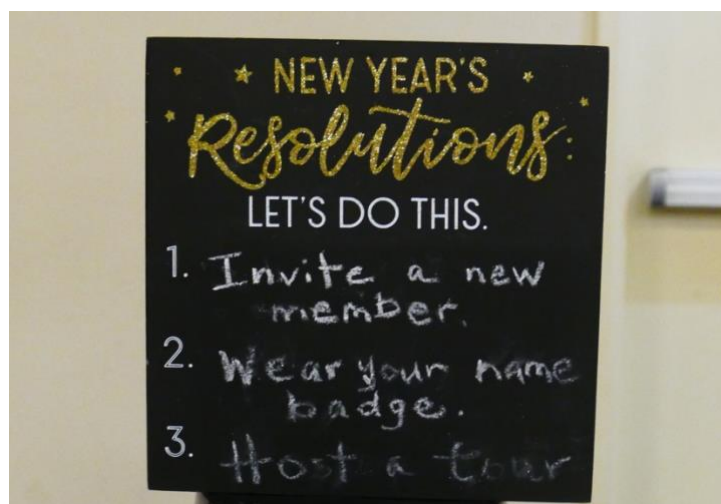 NEW YEAR'S
Resolutions:
LET'S DO THIS.
1. Invite a new
member.
2. Wear your name
badge.
3. Host a tour